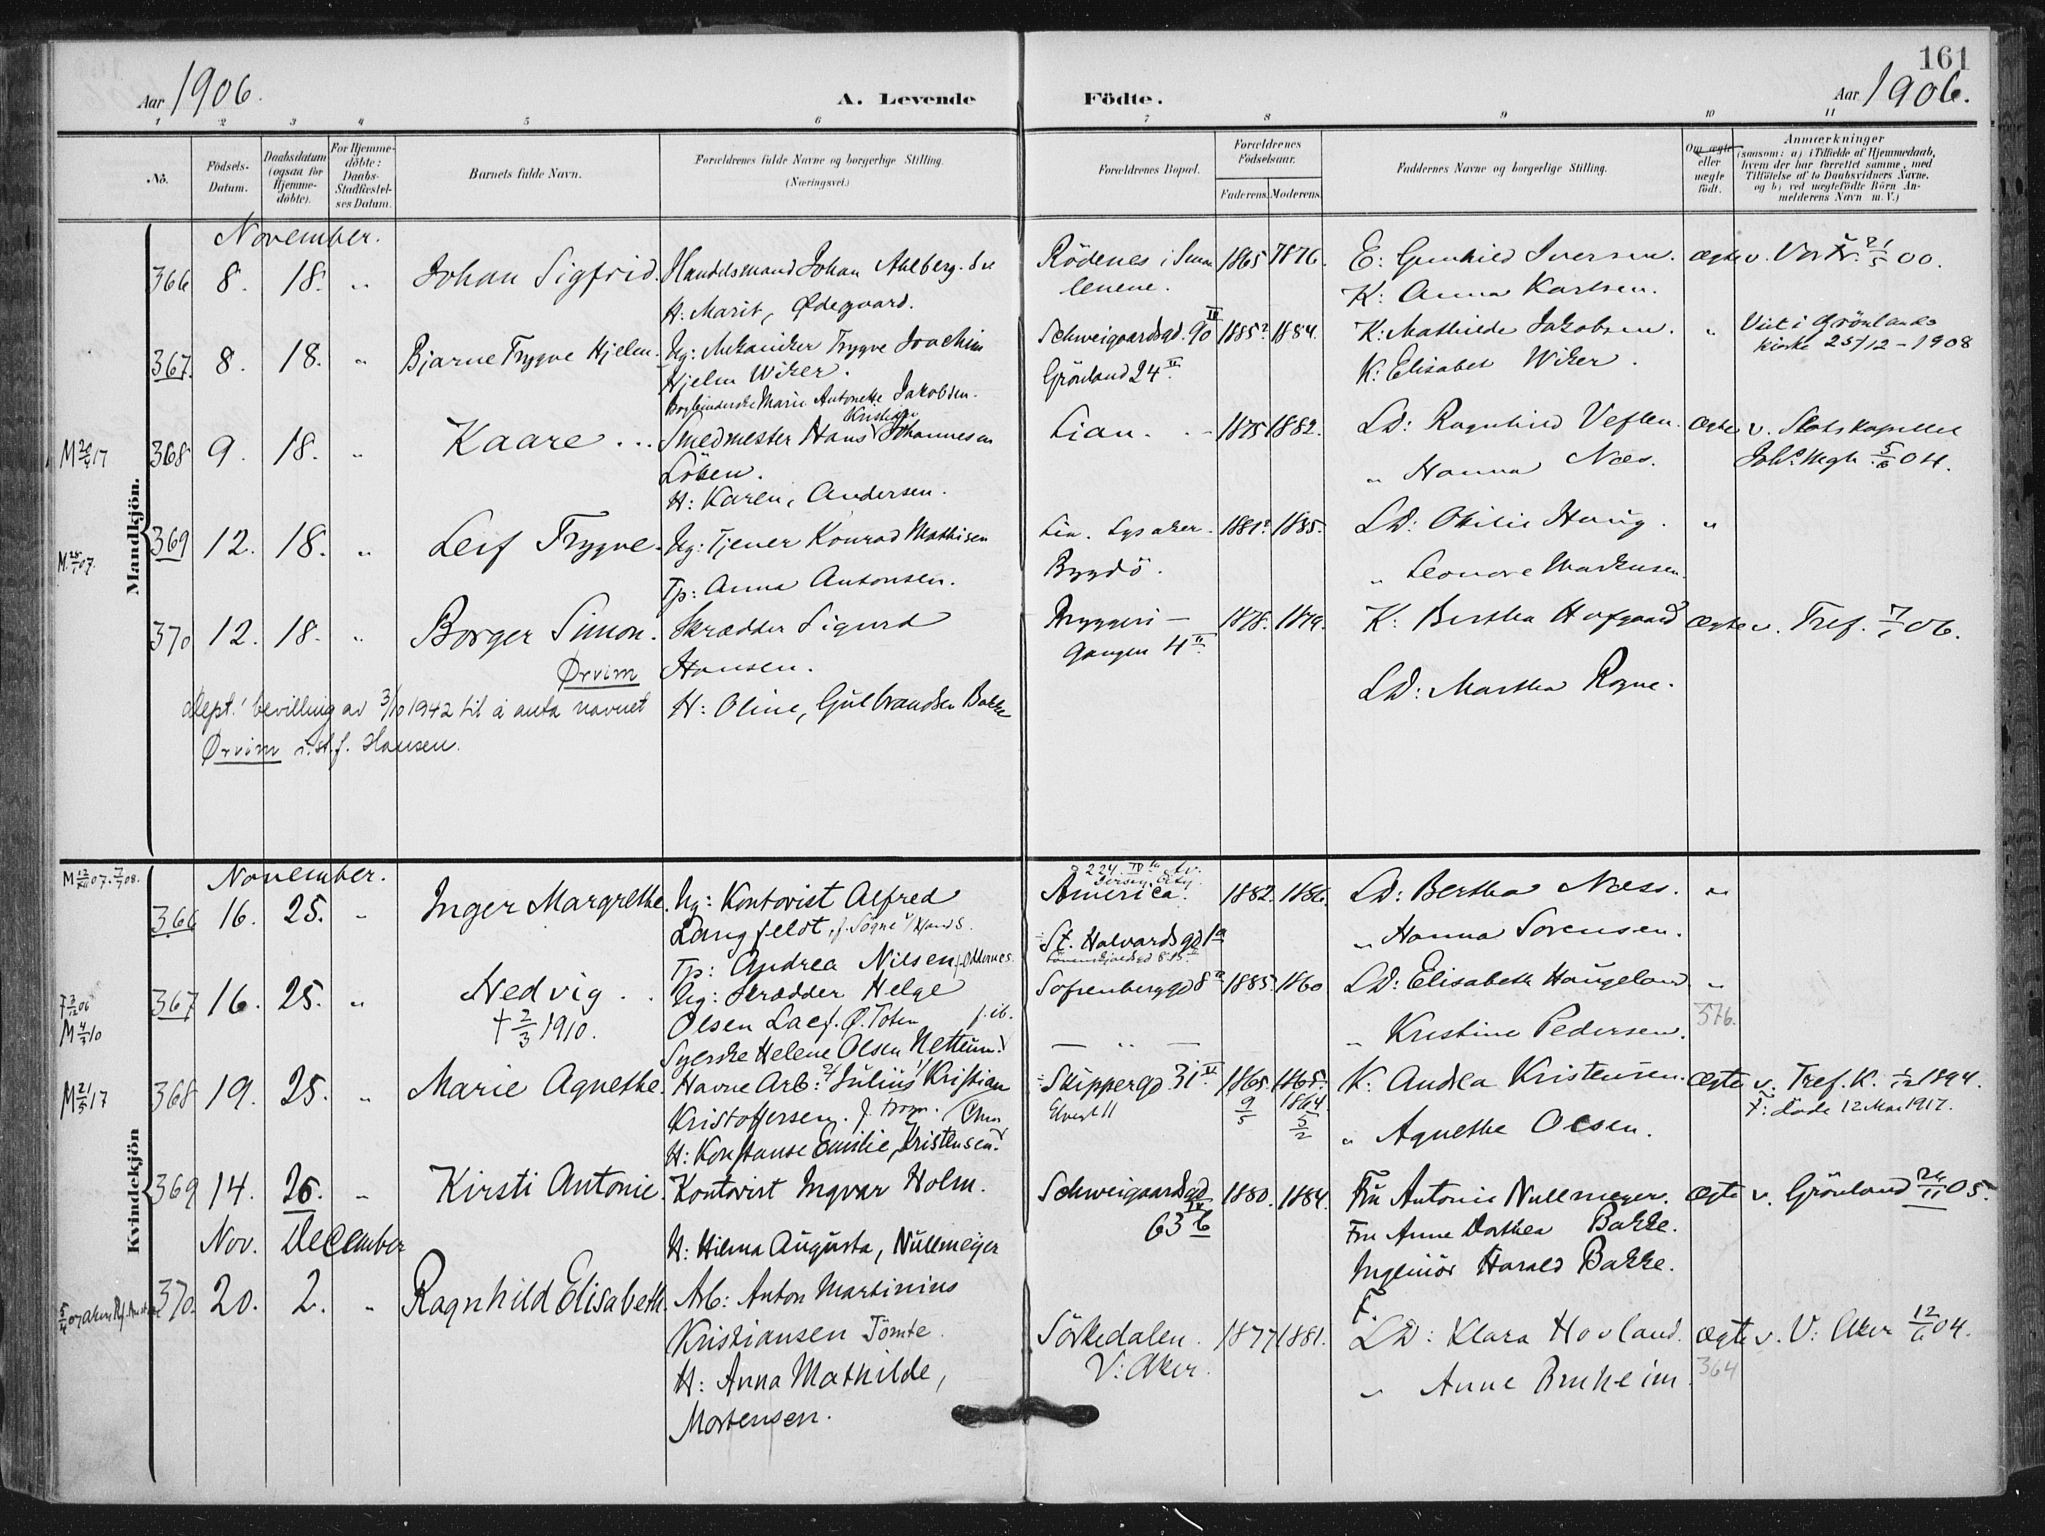 161
Aar 1906.
A. Levende Födte.
Aar 1906.
1 2 3 4 5 6 7 8 9 10 11
No.
Födsels-Datum.
Daabsdatum (ogsaa for Hjemme-döbte).
For Hjemme-döbte: Daabs-Stadfæstel-ses Datum.
Barnets fulde Navn.
Forældrenes fulde Navne og borgerlige Stilling.
(Næringsvei.)
Forældrenes Bopæl.
Forældrenes Födselsaar.
Faderens. Moderens.
Faddernes Navne og borgerlige Stilling.
Om ægte eller uægte födt.
Anmærkninger
(saasom: a) i Tilfælde af Hjemmedaab,
hvem der har forrettet samme, med
Tilföielse af to Daabsvidners Navne,
og b) ved uægtefödte Börn An-
melderens Navn m. V.)
Mandkjön.
November.
366 8. 18. " Johan Sigfrid. Handelsmand Johan Ahlberg.
H: Marit, Ødegaard.
Rödenes i Smaa
lenene.
1865 1876.
E: Gunhild Iversen.
K: Anna Karlsen.
Ægte v. Vor Fr. 21/5 00.
367. 8. 18. " Bjarne Trygve Hjelm. Ug: Mekaniker Trygve Joachim
Hjelm Wiker.
Bogbinderske Marie Antonette Jakobsen.
Schweigaardsgd. 90 IV
Grönland 24 II
1885? 1884.
K: Mathilde Jakobsen.
K: Elisabet Wiker.
"
Viet i Grönlands
kirke 25/12 - 1908
M 20/4 17
368 9. 18. " Kaare... Smedmester Hans Kristian Johannesen
Löken.
H: Karen, Andersen.
Lian.
1875 1882.
LD: Ragnhild Veflen.
" Hanna Næs.
Ægte v. Slotskapellet
5/6 04.
M. 25/1 07.
369 12. 18. " Leif Trygve. Ug: Tjener Konrad Mathisen
Tp: Anna Antonsen.
Lia. Lysaker.
Bygdö.
1881? 1885.
LD: Othilie Haug.
" Leonore Markusen.
"
370 12. 18. " Borger Simon. Skrædder Sigurd
Ørvim Hansen.
H: Oline, Gulbrandsen Bakke
Bryggeri-
gangen 4 II
1878. 1879.
K: Bertha Hofgaard
LD: Martha Rogne.
Ægte v. Tref. 7/1 06.
dept.' bevilling av 3/10 1942 til å anta navnet
Ørvim i st.f. Hansen.
Kvindekjön
November.
M 12/XII 07. 7/7 08.
366 16. 25. " Inger Margrethe. Ug: Kontorist Alfred
Langfeldt, f. Søgne v/ Mands.
Tp: Andrea Nilsen f. Oddernes.
224. IV Av.
Jersey City
America.
St. Halvards gd 1 a
1882. 1886.
LD: Bertha Næss.
" Hanna Sörensen.
"
M 4/3 10
367 16. 25. " Hedvig. Ug: Skrædder Helge
† 2/3 1910. Olsen Lae f. Ø. Toten f. ib.
Syerske Helene Olsen Nettum.
Sofienberggd 8 a
1885. 1860
LD: Elisabeth Haugeland
" Kristine Pedersen.
"
376.
M 21/5 17
368 19. 25. " Marie Agnethe. Havne Arb: Julius Kristian
Kristoffersen.
H: Konstanse Emilie, Kristensen.
Skippergd 31 IV
Elvegt 11
1865. 1865.
9/5 1864 5/2
K: Andrea Kristensen.
" Agnethe Olsen.
Ægte v. Tref. K. 1/12 1894.
F: döde 12 Mai 1917.
369 14. 26. " Kirsti Antonie. Kontorist Ingvar Holm.
H: Hilma Augusta, Nullmeyer
Schweigaardsgd
63 b IV
1880. 1884.
Fru Antonie Nullmeyer.
Fru Anne Dorthea Bakke.
Ingeniör Harald Bakke.
F.
Ægte v. Grönland 26/11 05.
Nov. December
370. 20. 2. " Ragnhild Elisabeth. Arb: Anton Martinius
Kristiansen Tömte.
H: Anna Mathilde,
Mortensen.
Sörkedalen.
V: Aker.
1877 1881.
LD: Klara Hovland.
" Anne Bruheim.
Ægte v. V: Aker 12/6 04.
364